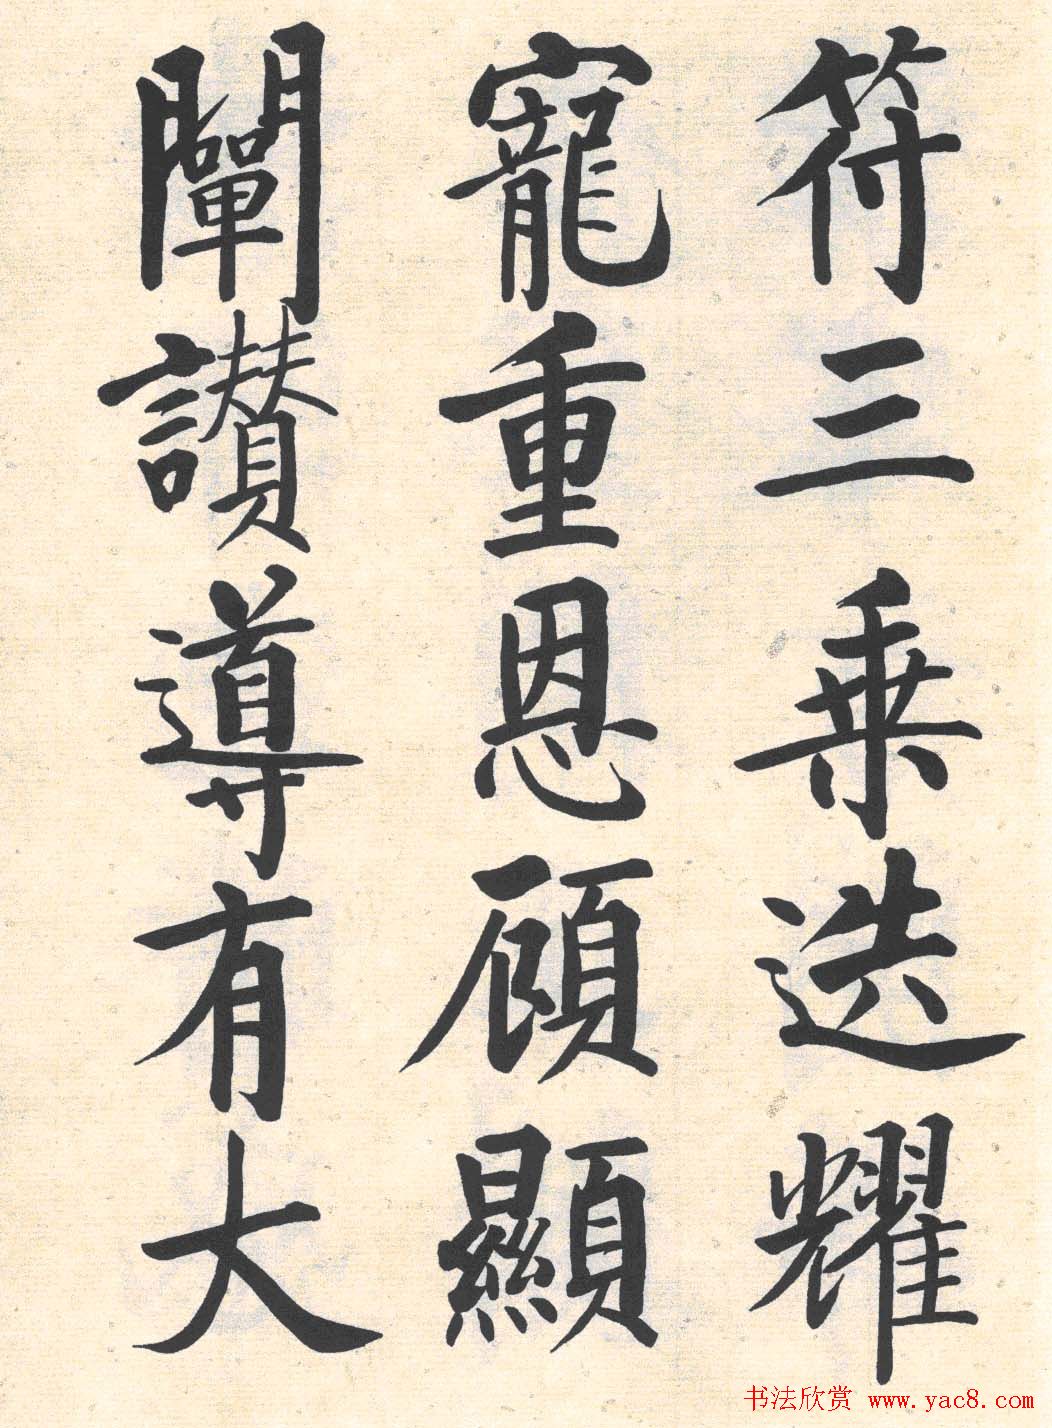 符三乗迭耀
寵重恩顧顯
闡讃導有大
书法欣赏 www.yac8.com